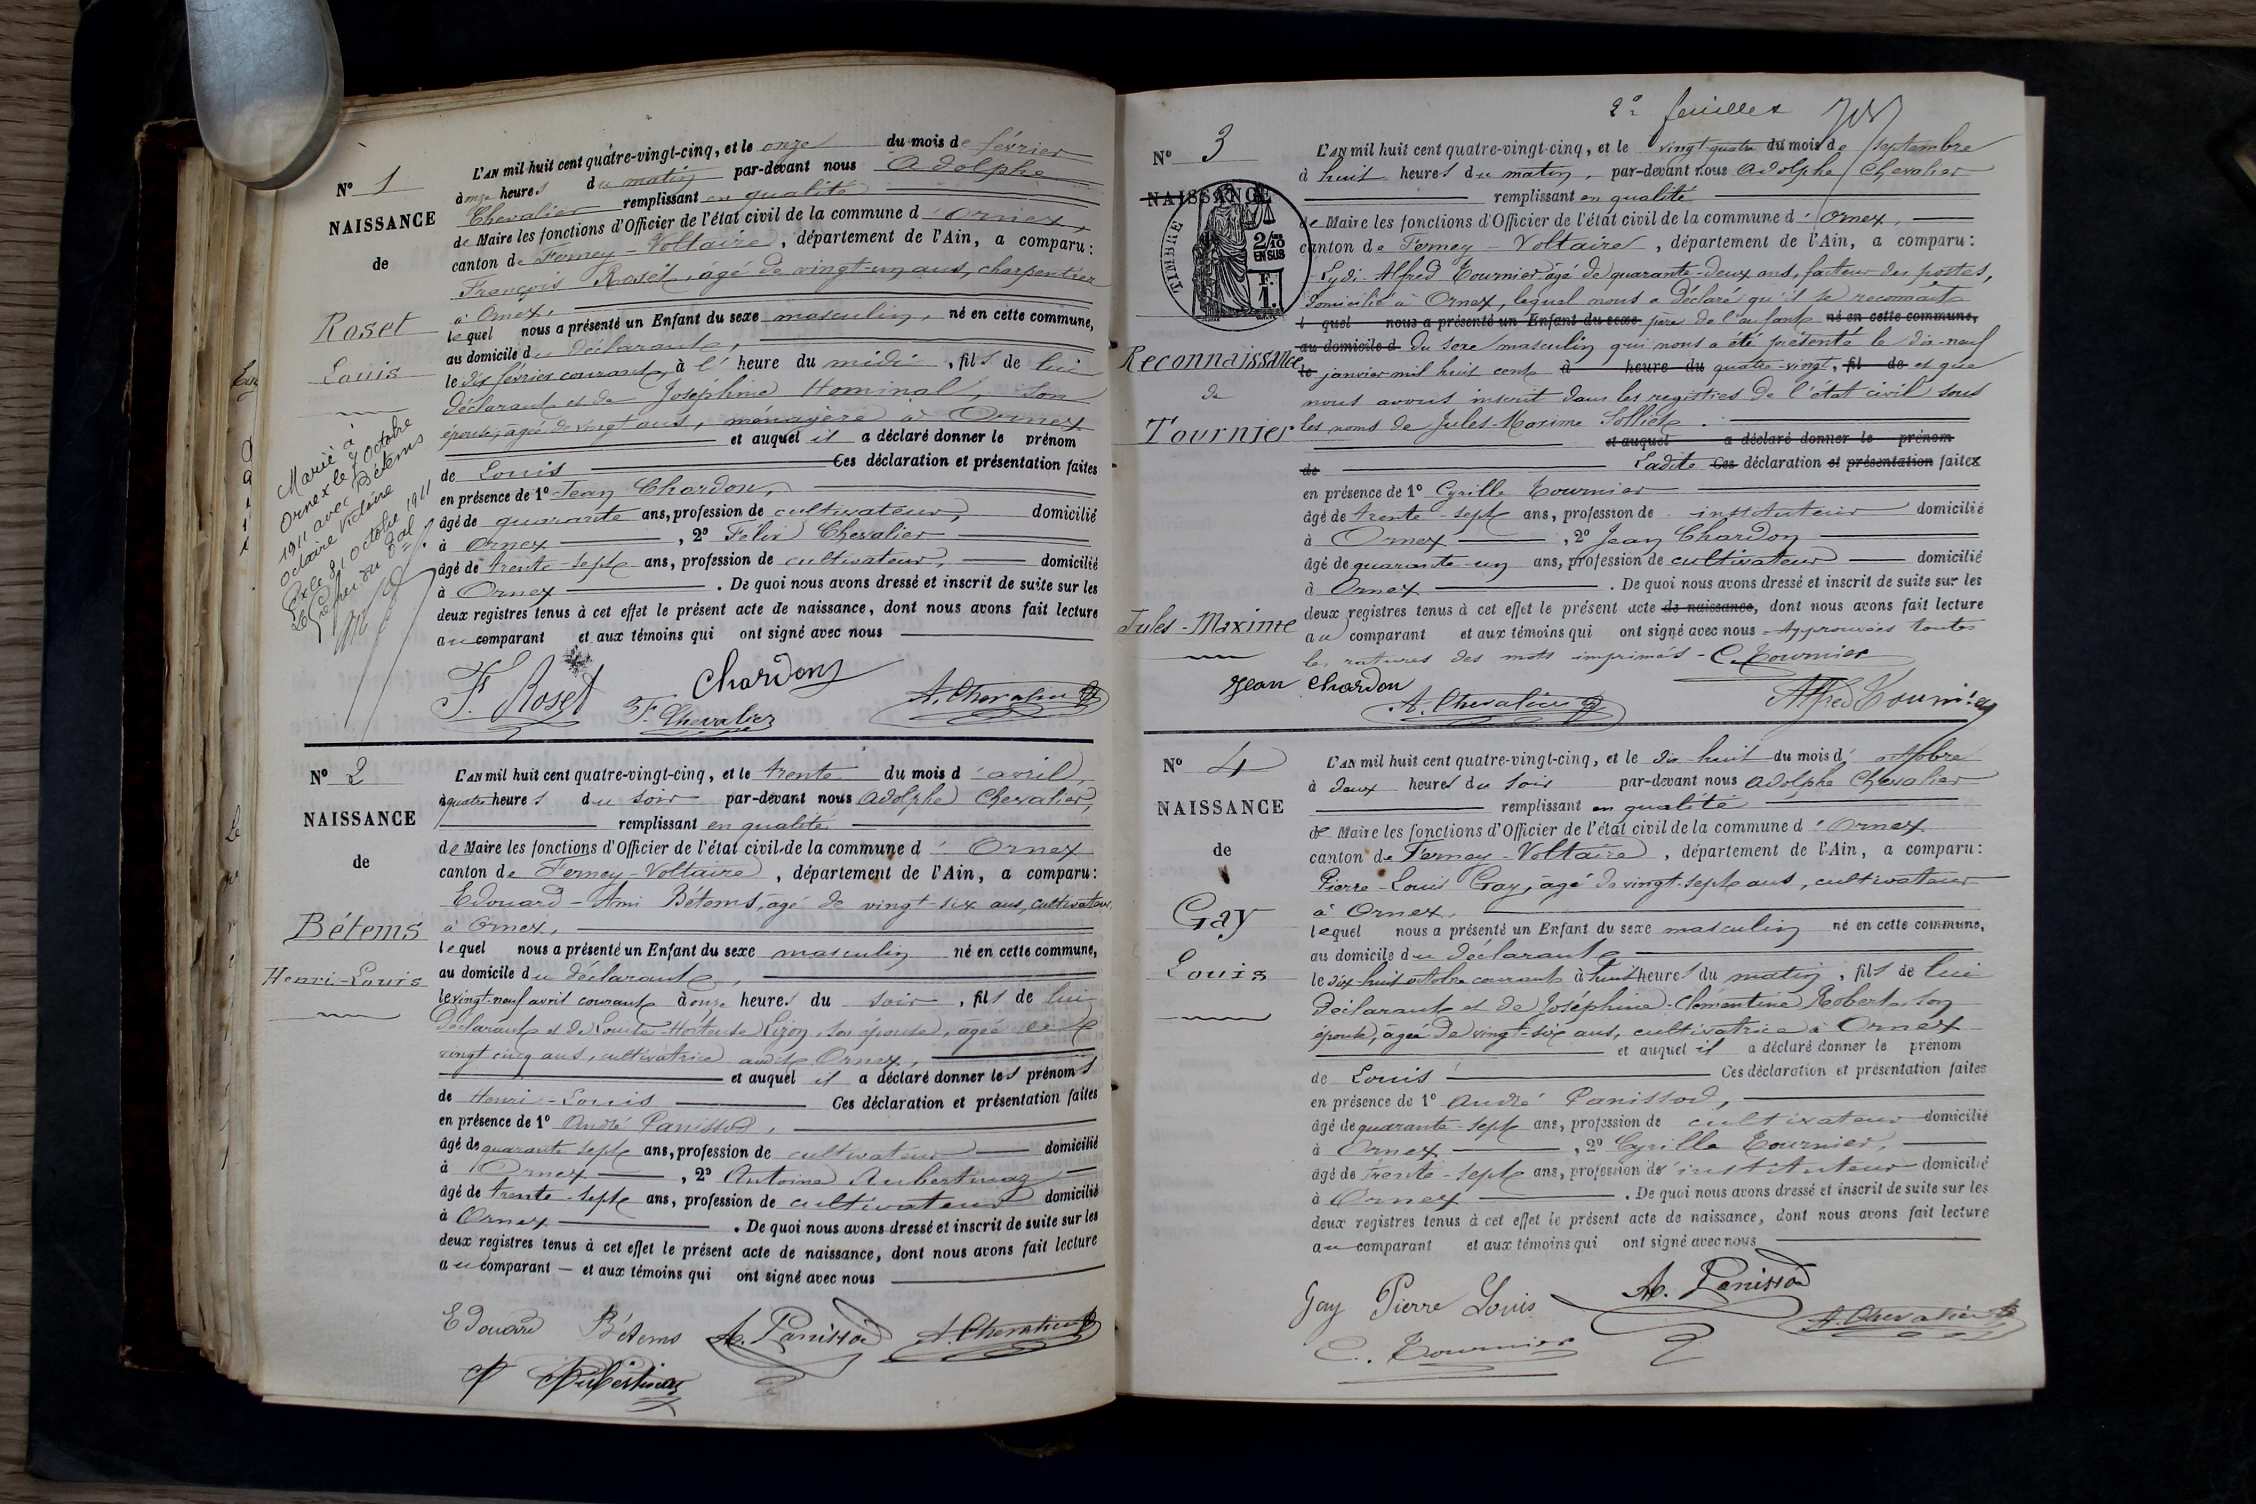 Nº 1
NAISSANCE
de
Roset
Louis
Marié à
Ornex le 7 Octobre
1911 avec Bétems
Octavie Victoire
le 31 Octobre 1911
L'AN mil huit cent quatre-vingt-cinq, et le onze du mois de février
à onze heures du matin par-devant nous Adolphe
Chevalier remplissant en qualité
de Maire les fonctions d'Officier de l'état civil de la commune d'Ornex,
canton de Ferney-Voltaire, département de l'Ain, a comparu:
François Roset, âgé de vingt-un ans, charpentier
à Ornex,
lequel nous a présenté un Enfant du sexe masculin, né en cette commune,
au domicile du déclarant,
le dix février courant, à l'heure du midi, fils de lui
déclarant et de Joséphine Hominal, son
épouse, âgée de vingt ans, ménagère à Ornex
et auquel il a déclaré donner le prénom
de Louis Ces déclaration et présentation faites
en présence de 1º Jean Chardon,
âgé de quarante ans, profession de cultivateur, domicilié
à Ornex, 2º Félix Chevalier
âgé de trente-sept ans, profession de cultivateur, domicilié
à Ornex. De quoi nous avons dressé et inscrit de suite sur les
deux registres tenus à cet effet le présent acte de naissance, dont nous avons fait lecture
au comparant et aux témoins qui ont signé avec nous
F. Roset Chardon
F. Chevalier A. Chevalier
Nº 2
NAISSANCE
de
Bétems
Henri-Louis
L'AN mil huit cent quatre-vingt-cinq, et le trente du mois d'avril,
à quatre heures du soir par-devant nous Adolphe Chevalier,
remplissant en qualité
de Maire les fonctions d'Officier de l'état civil de la commune d'Ornex
canton de Ferney-Voltaire, département de l'Ain, a comparu:
Edouard-Ami Bétems, âgé de vingt-six ans, cultivateur
à Ornex,
lequel nous a présenté un Enfant du sexe masculin né en cette commune,
au domicile du déclarant,
le vingt-neuf avril courant à onze heures du soir, fils de lui
déclarant et de Louise-Hortense Lizon, son épouse, âgée de
vingt cinq ans, cultivatrice audit Ornex,
et auquel il a déclaré donner les prénoms
de Henri-Louis Ces déclaration et présentation faites
en présence de 1º André Panissod,
âgé de quarante sept ans, profession de cultivateur domicilié
à Ornex, 2º Antoine
âgé de trente-sept ans, profession de cultivateur domicilié
à Ornex. De quoi nous avons dressé et inscrit de suite sur les
deux registres tenus à cet effet le présent acte de naissance, dont nous avons fait lecture
au comparant et aux témoins qui ont signé avec nous
Edouard Bétems A. Panissod A. Chevalier
2e feuilles
Nº 3
NAISSANCE
TIMBRE
2/10
EN SUS
F.
1.
Reconnaissance
de
Tournier
Jules-Maxime
L'AN mil huit cent quatre-vingt-cinq, et le vingt quatre du mois de septembre
à huit heures du matin, par-devant nous Adolphe Chevalier
remplissant en qualité
de Maire les fonctions d'Officier de l'état civil de la commune d'Ornex,
canton de Ferney-Voltaire, département de l'Ain, a comparu:
Alfred Tournier, âgé de quarante-deux ans, facteur des postes,
domicilié à Ornex, lequel nous a déclaré qu'il se reconnaît
l quel nous a présenté un Enfant du sexe père de l'enfant né en cette commune,
au domicile d du sexe masculin qui nous a été présenté le dix-neuf
le janvier mil huit cent à heure du quatre-vingt, fil de et que
nous avons inscrit dans les registres de l'état civil sous
les noms de Jules-Maxime
et auquel a déclaré donner le prénom
de Ladite Ces déclaration et présentation faites
en présence de 1º Cyrille Tournier
âgé de trente-sept ans, profession de instituteur domicilié
à Ornex, 2º Jean Chardon
âgé de quarante-un ans, profession de cultivateur domicilié
à Ornex. De quoi nous avons dressé et inscrit de suite sur les
deux registres tenus à cet effet le présent acte de naissance, dont nous avons fait lecture
au comparant et aux témoins qui ont signé avec nous - Approuvées toutes
les ratures des mots imprimés - C. Tournier
Jean Chardon
A. Chevalier Alfred Tournier
Nº 4
NAISSANCE
de
Gay
Louis
L'AN mil huit cent quatre-vingt-cinq, et le dix huit du mois d'octobre
à deux heures du soir par-devant nous Adolphe Chevalier
remplissant en qualité
de Maire les fonctions d'Officier de l'état civil de la commune d'Ornex
canton de Ferney-Voltaire, département de l'Ain, a comparu:
Pierre-Louis Gay, âgé de vingt-sept ans, cultivateur
à Ornex,
lequel nous a présenté un Enfant du sexe masculin né en cette commune,
au domicile du déclarant
le dix-huit octobre courant à huit heures du matin, fils de lui
déclarant et de Joséphine-Clémentine Robert, son
épouse, âgée de vingt-six ans, cultivatrice à Ornex
et auquel il a déclaré donner le prénom
de Louis Ces déclaration et présentation faites
en présence de 1º André Panissod,
âgé de quarante-sept ans, profession de cultivateur domicilié
à Ornex, 2º Cyrille Tournier,
âgé de trente-sept ans, profession de instituteur domicilié
à Ornex. De quoi nous avons dressé et inscrit de suite sur les
deux registres tenus à cet effet le présent acte de naissance, dont nous avons fait lecture
au comparant et aux témoins qui ont signé avec nous
Gay Pierre Louis A. Panissod
C. Tournier A. Chevalier